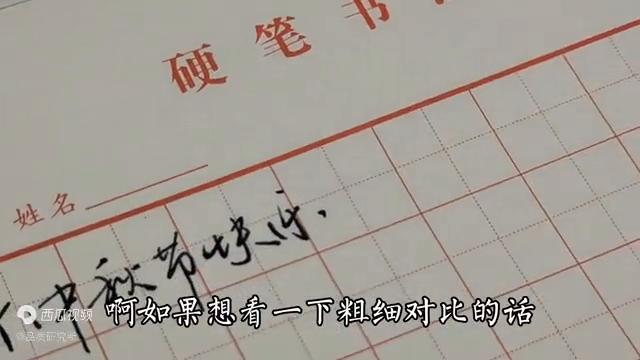 硬笔书
姓名
中秋节快乐.
西瓜视频
@品质研究所
啊如果想看一下粗细对比的话